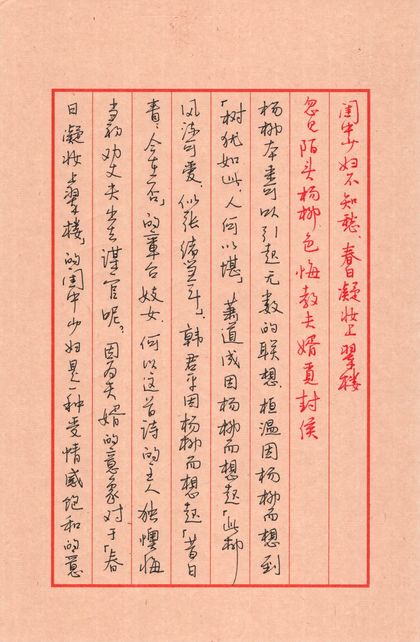 闺中少妇不知愁，春日凝妆上翠楼
忽见陌头杨柳色 悔教夫婿觅封侯
杨柳本来可以引起无数的联想，桓温因杨柳而想到
「树犹如此，人何以堪」，萧道成因杨柳而想起「此柳
风流可爱，似张绪当年」，韩君平因杨柳而想起「昔日
青青今在否」的章台妓女，何以这首诗的主人独懊悔
当初劝丈夫出去谋官呢？因为夫婿的意象对于「春
日凝妆上翠楼」的闺中少妇是一种受情感饱和的意